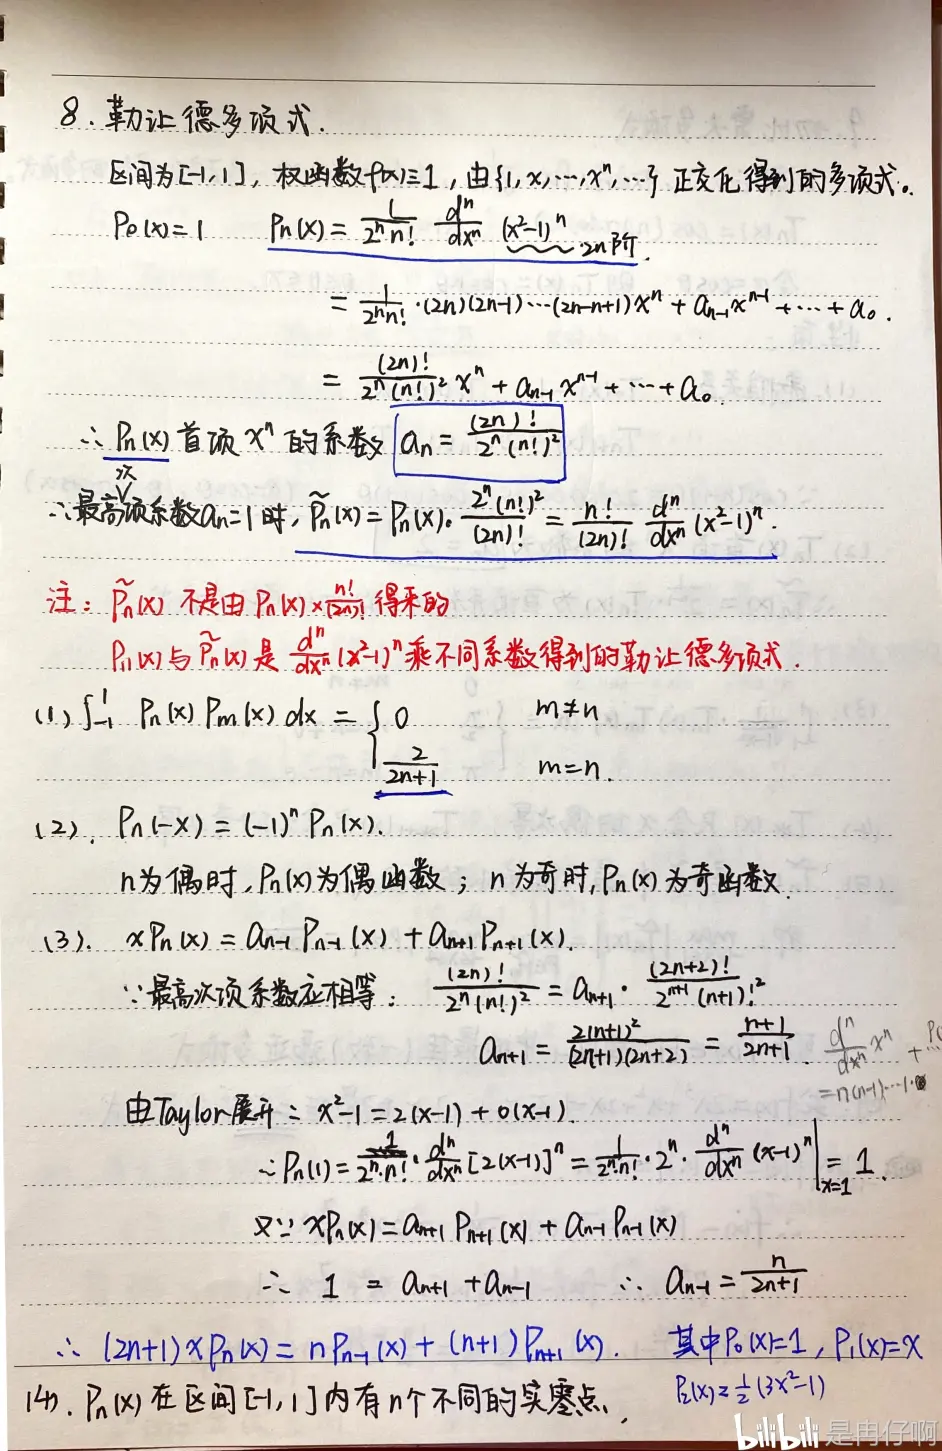 8. 勒让德多项式.
区间为[-1,1], 权函数ρ(x)≡1, 由{1, x, …, x^n, …} 正交化得到的多项式。
P_0(x)=1 P_n(x) = \frac{1}{2^n n!} \frac{d^n}{dx^n} (x²-1)^n 2n阶.
= \frac{1}{2^n n!} · (2n)(2n-1)…(2n-n+1) x^n + a_{n-1} x^{n-1} + … + a_0.
= \frac{(2n)!}{2^n (n!)²} x^n + a_{n-1} x^{n-1} + … + a_0
∴ P_n(x) 首项 x^n 的系数 a_n = \frac{(2n)!}{2^n (n!)²}
∴ 最高次项系数a_n=1时, \tilde{P}_n(x) = P_n(x)· \frac{2^n (n!)²}{(2n)!} = \frac{n!}{(2n)!} \frac{d^n}{dx^n} (x²-1)^n.
注: \tilde{P}_n(x) 不是由 P_n(x) × \frac{n!}{(2n)!} 得来的
P_n(x) 与 \tilde{P}_n(x) 是 \frac{d^n}{dx^n} (x²-1)^n 乘不同系数得到的勒让德多项式.
(1) ∫_{-1}^{1} P_n(x) P_m(x) dx = { 0 m≠n
\frac{2}{2n+1} m=n.
(2). P_n(-x) = (-1)^n P_n(x).
n为偶时, P_n(x)为偶函数; n为奇时, P_n(x)为奇函数.
(3). xP_n(x) = a_{n-1} P_{n-1}(x) + a_{n+1} P_{n+1}(x).
∵ 最高次项系数应相等: \frac{(2n)!}{2^n (n!)²} = a_{n+1} · \frac{(2n+2)!}{2^{n+1} (n+1)!²}
a_{n+1} = \frac{2(n+1)²}{(2n+1)(2n+2)} = \frac{n+1}{2n+1}.
\frac{d^n}{dx^n} x^n +
= n(n-1)…1·
由Taylor展开: x²-1 = 2(x-1) + o(x-1).
∴ P_n(1) = \frac{1}{2^n·n!} · \frac{d^n}{dx^n} [2(x-1)]^n = \frac{1}{2^n n!} · 2^n · \frac{d^n}{dx^n} (x-1)^n |_{x=1} = 1.
又∵ xP_n(x) = a_{n+1} P_{n+1}(x) + a_{n-1} P_{n-1}(x)
∴ 1 = a_{n+1} + a_{n-1} ∴ a_{n-1} = \frac{n}{2n+1}
∴ (2n+1) x P_n(x) = n P_{n-1}(x) + (n+1) P_{n+1}(x). 其中P_0(x)=1, P_1(x)=x
P_2(x)=\frac{1}{2}(3x²-1)
(4). P_n(x) 在区间[-1,1]内有n个不同的实零点.
bilibili 是冉仔啊